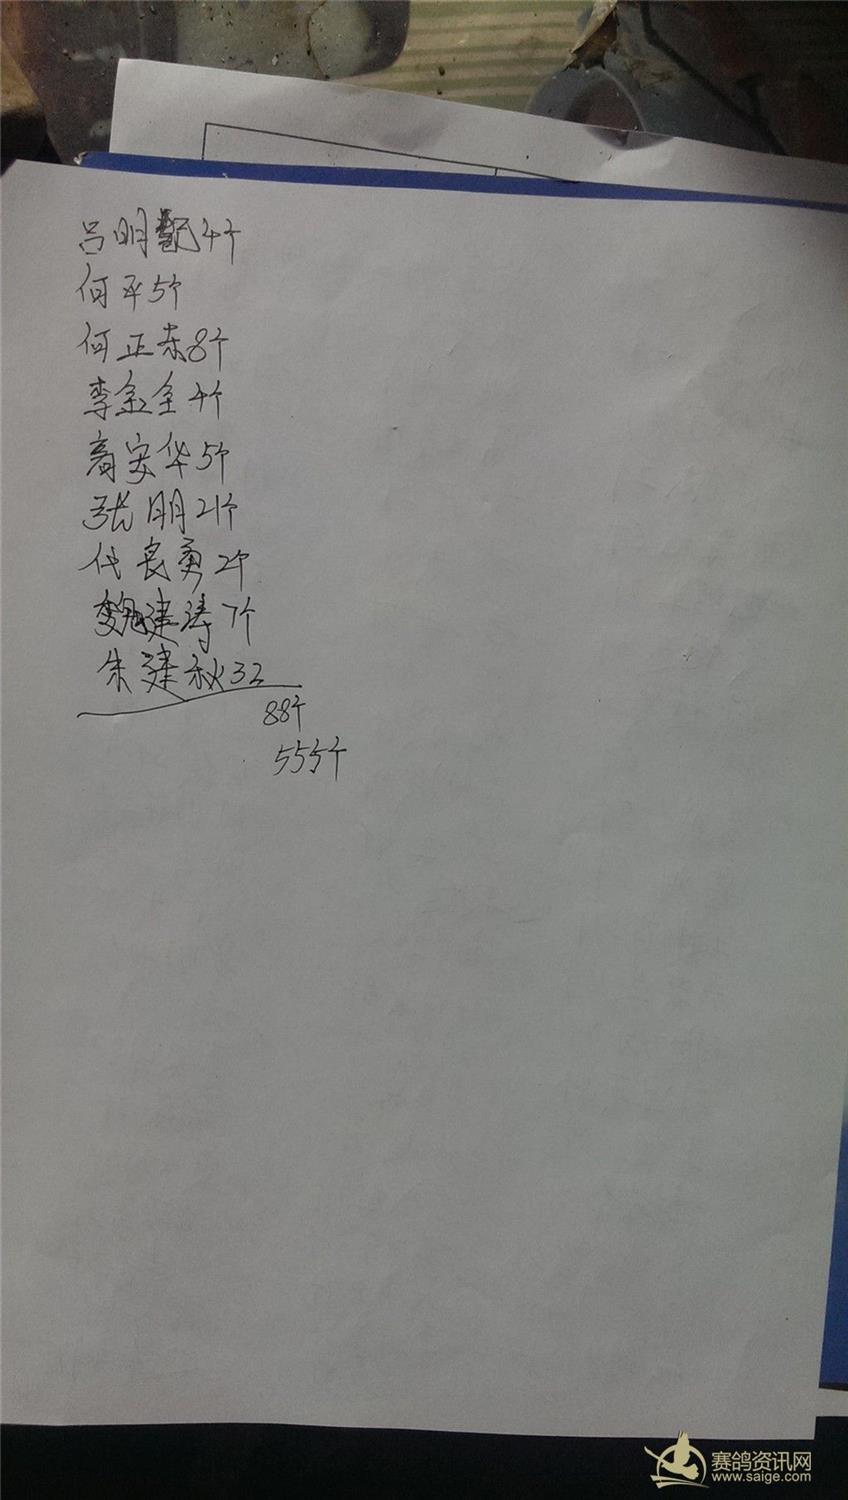 吕明 4个
何平5个
何正东8个
李金全4个
高安华5个
张明21个
代良勇2个
魏建涛7个
朱建秋32
88个
555个
赛鸽资讯网
www.saige.com